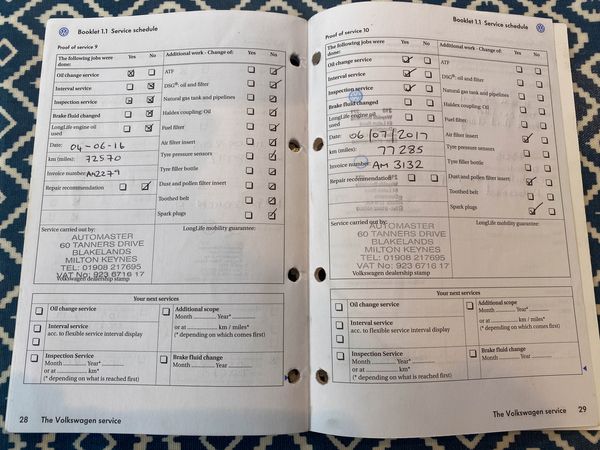 Booklet 1.1 Service schedule
Proof of service 9
The following jobs were done: Yes No
Oil change service
Interval service
Inspection service
Brake fluid changed
LongLife engine oil used
Date: 04-06-16
km (miles): 72570
Invoice number: AM2279
Repair recommendation
Additional work - Change of: Yes No
ATF
DSG®: oil and filter
Natural gas tank and pipelines
Haldex coupling: Oil
Fuel filter
Air filter insert
Tyre pressure sensors
Tyre filler bottle
Dust and pollen filter insert
Toothed belt
Spark plugs
Service carried out by:
LongLife mobility guarantee:
AUTOMASTER
60 TANNERS DRIVE
BLAKELANDS
MILTON KEYNES
TEL: 01908 217695
VAT No: 923 6716 17
Volkswagen dealership stamp
Your next services
Oil change service
Interval service
acc. to flexible service interval display
Additional scope
Month Year*
or at km / miles*
(* depending on which comes first)
Inspection Service
Month Year*
or at km*
(* depending on what is reached first)
Brake fluid change
Month Year
28 The Volkswagen service
Booklet 1.1 Service schedule
Proof of service 10
The following jobs were done: Yes No
Oil change service
Interval service
Inspection service
Brake fluid changed
LongLife engine oil used
Date: 06/07/2017
km (miles): 77285
Invoice number: AM 3132
Repair recommendation
Additional work - Change of: Yes No
ATF
DSG®: oil and filter
Natural gas tank and pipelines
Haldex coupling: Oil
Fuel filter
Air filter insert
Tyre pressure sensors
Tyre filler bottle
Dust and pollen filter insert
Toothed belt
Spark plugs
Service carried out by:
LongLife mobility guarantee:
AUTOMASTER
60 TANNERS DRIVE
BLAKELANDS
MILTON KEYNES
TEL: 01908 217695
VAT No: 923 6716 17
Volkswagen dealership stamp
Your next services
Oil change service
Interval service
acc. to flexible service interval display
Additional scope
Month Year*
or at km / miles*
(* depending on which comes first)
Inspection Service
Month Year*
or at km*
(* depending on what is reached first)
Brake fluid change
Month Year
The Volkswagen service 29